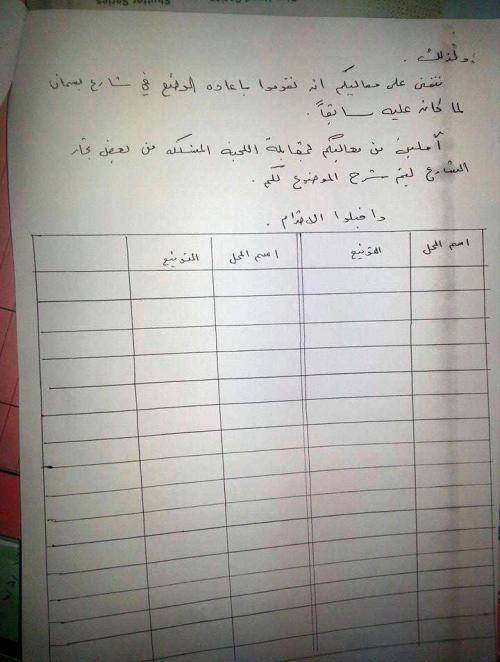 ولذلك .
نتمنى على معاليكم ان تقوموا باعاده الوضع في شارع بسمان
لما كان عليه سابقاً .
آملين من معاليكم لمقابلة اللجنة المشكله من بعض تجار
الشارع ليتم شرح الموضوع لكم .
واقبلوا الاحترام .
اسم المحل التوقيع اسم المحل التوقيع